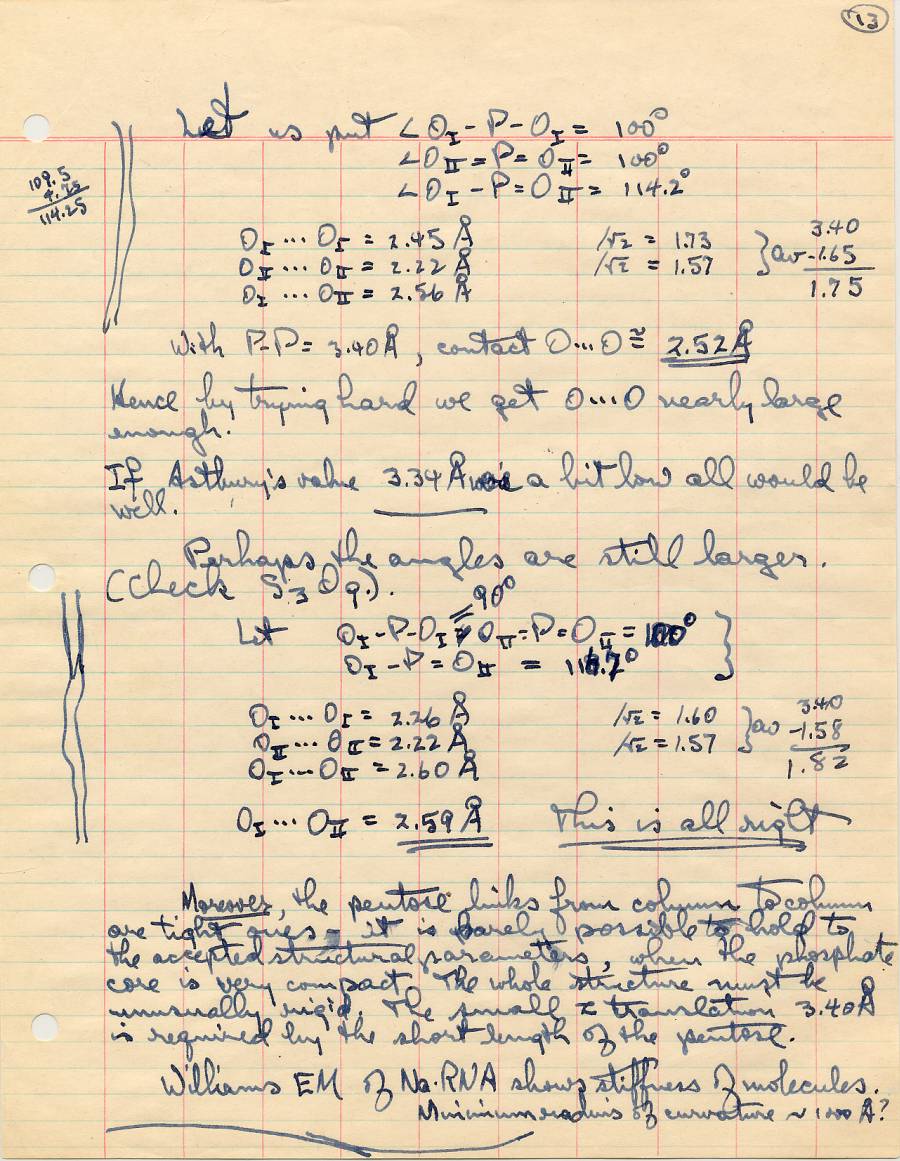 13
Let us put ∠ O_I - P - O_I = 100°
∠ O_II = P = O_II = 100°
∠ O_I - P = O_II = 114.2°
109.5
4.75
114.25
O_I ··· O_I = 2.45 Å /√2 = 1.73 } av 3.40
O_II ··· O_II = 2.22 Å /√2 = 1.57 -1.65
O_I ··· O_II = 2.56 Å 1.75
With P-P = 3.40 Å, contact O···O ≅ 2.52 Å
Hence by trying hard we get O···O nearly large
enough.
If Astbury's value 3.34 Å were a bit low all would be
well.
Perhaps the angles are still larger.
(Check S3O9.).
= 90°
Let O_I - P - O_I = O_II = P = O_II = 100° }
O_I - P = O_II = 116.7°
O_I ··· O_I = 2.26 Å /√2 = 1.60 } av 3.40
O_II ··· O_II = 2.22 Å /√2 = 1.57 -1.58
O_I ··· O_II = 2.60 Å 1.82
O_I ··· O_II = 2.59 Å This is all right
Moreover, the pentose links from column to column
are tight ones - it is barely possible to hold to
the accepted structural parameters, when the phosphate
core is very compact. The whole structure must be
unusually rigid. The small z translation 3.40 Å
is required by the short length of the pentose.
Williams EM of Na·RNA shows stiffness of molecules.
Minimum radius of curvature ~ 1000 Å?